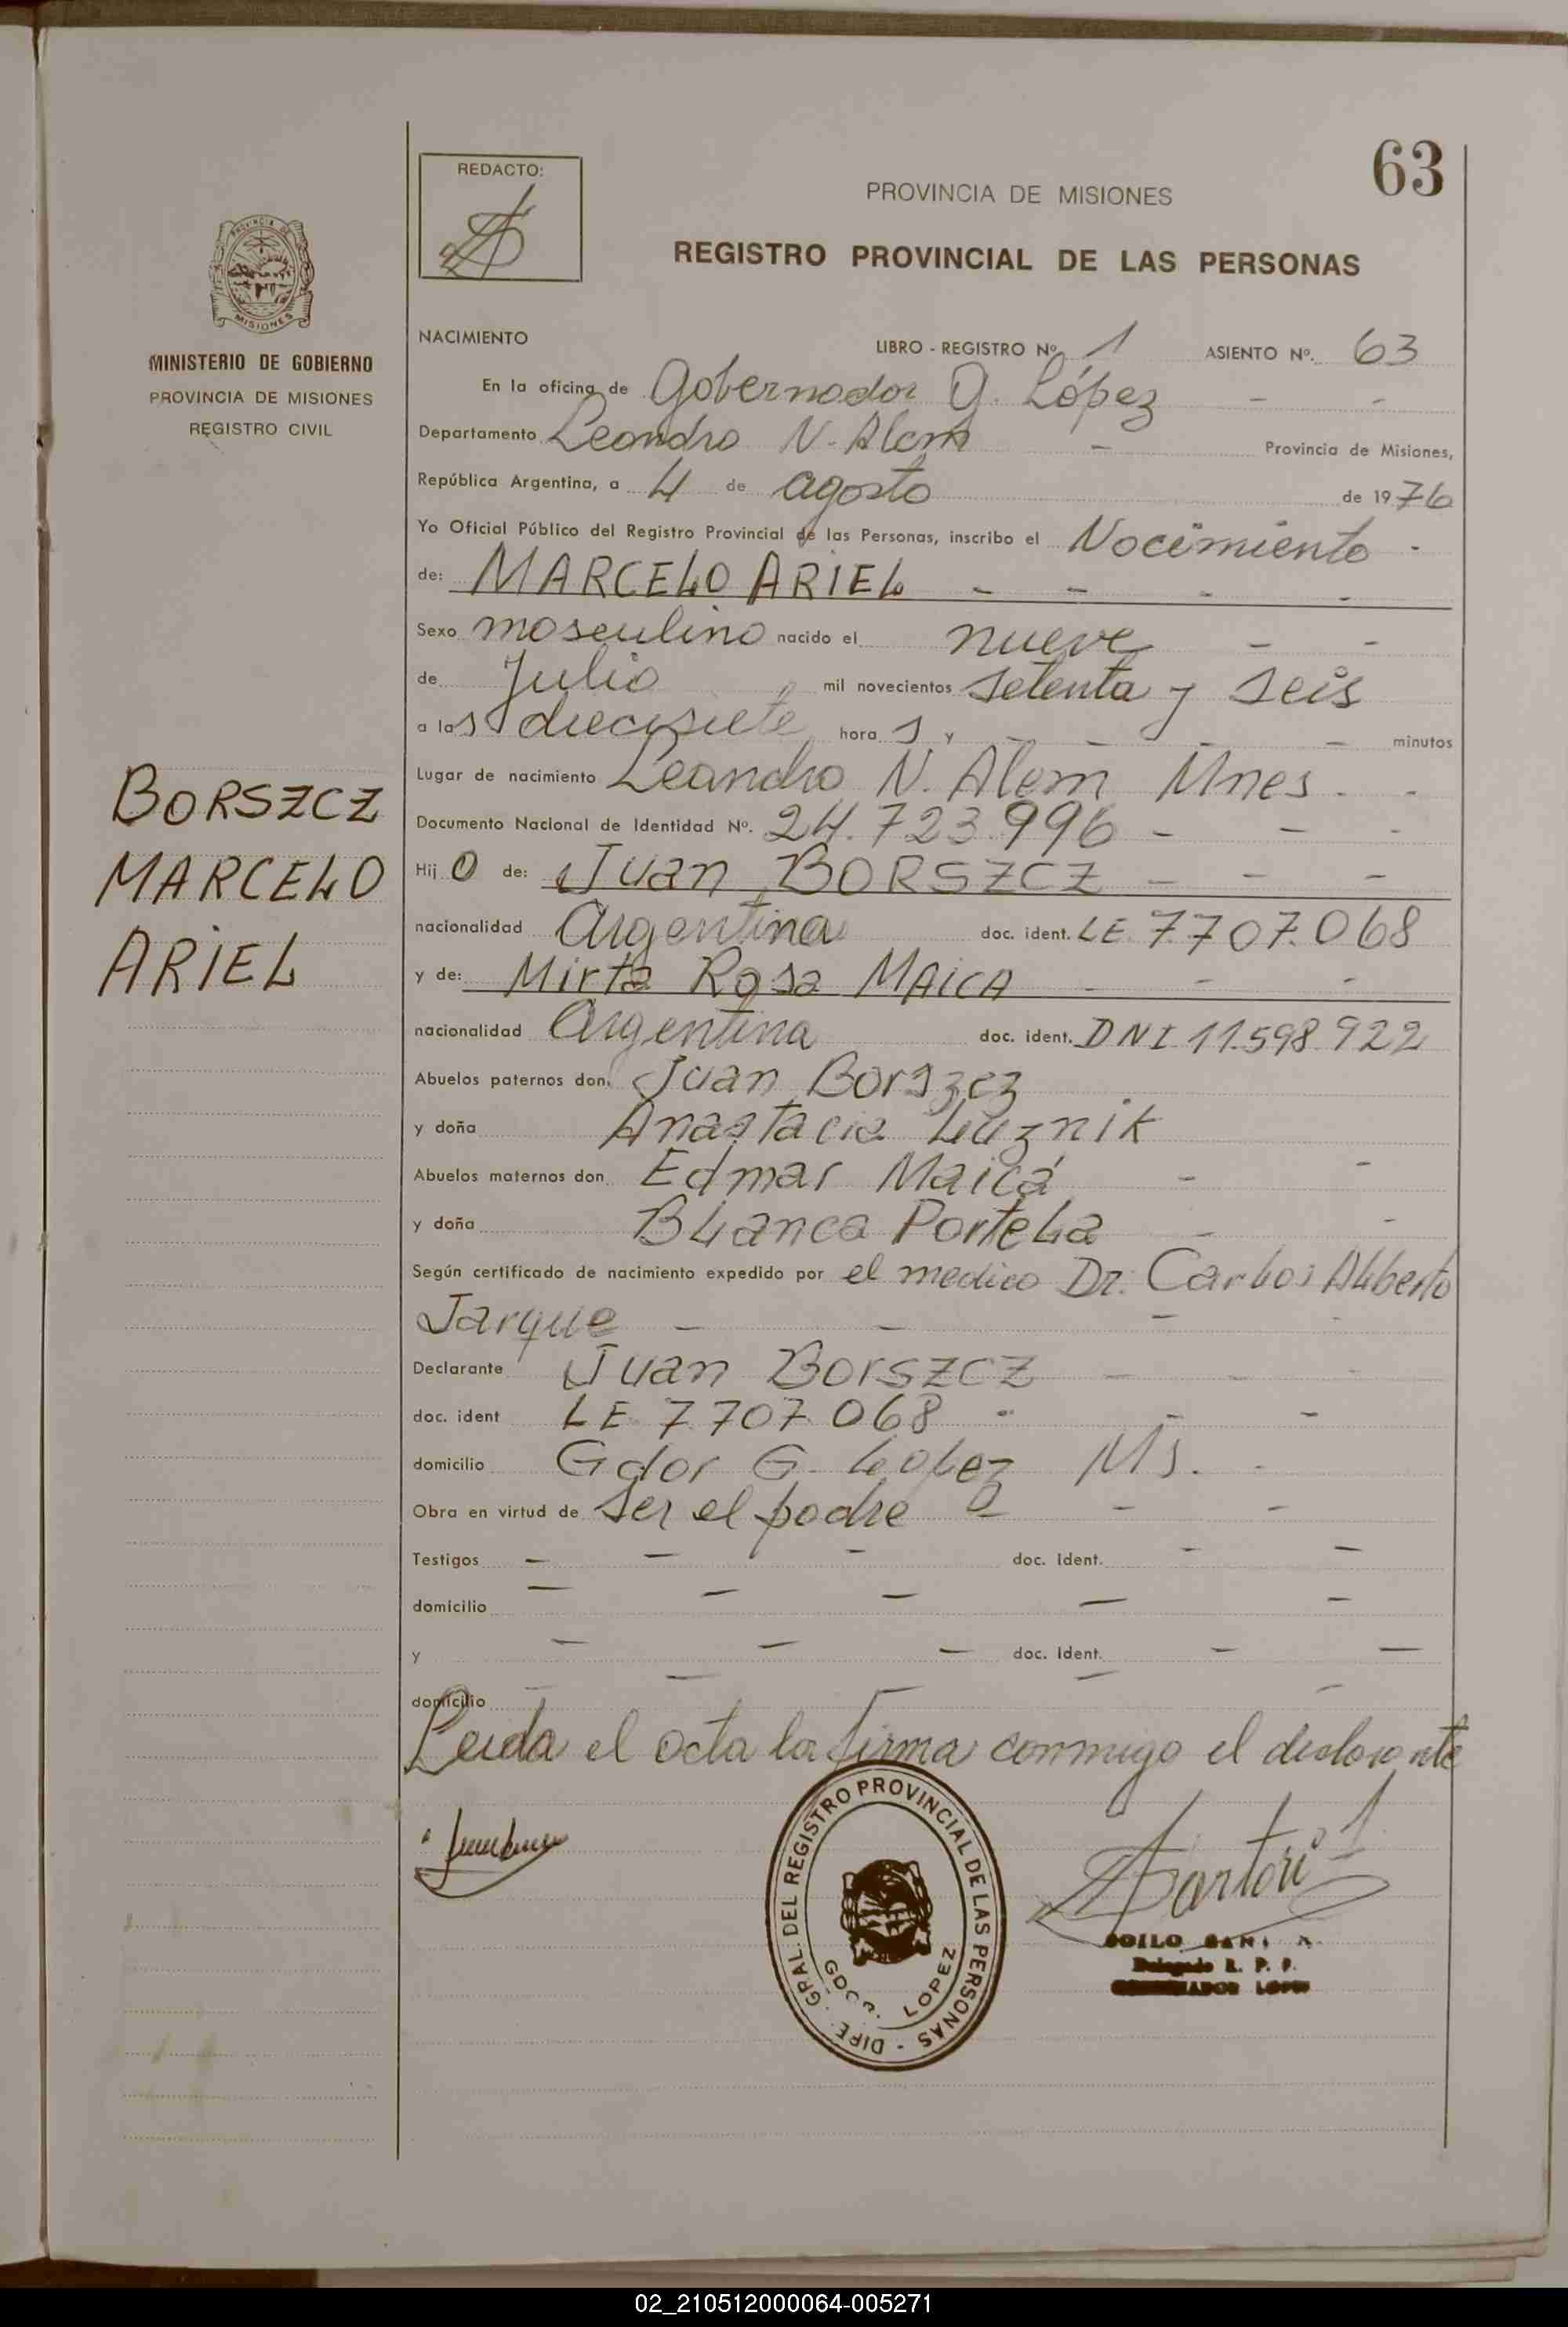 63
REDACTO:
PROVINCIA DE MISIONES
REGISTRO PROVINCIAL DE LAS PERSONAS
PROVINCIA DE
MISIONES
MINISTERIO DE GOBIERNO
PROVINCIA DE MISIONES
REGISTRO CIVIL
BORSZCZ
MARCELO
ARIEL
NACIMIENTO LIBRO - REGISTRO Nº 1 ASIENTO Nº. 63
En la oficina de Gobernador G. López - -
Departamento Leandro N. Alem - Provincia de Misiones,
República Argentina, a 4 de agosto de 1976
Yo Oficial Público del Registro Provincial de las Personas, inscribo el Nacimiento -
de: MARCELO ARIEL - - - -
Sexo masculino nacido el nueve - -
de Julio mil novecientos setenta y seis
a las diecisiete hora s y - - - - minutos
Lugar de nacimiento Leandro N. Alem Mnes. -
Documento Nacional de Identidad Nº. 24.723.996 - - -
Hij o de: Juan BORSZCZ - - -
nacionalidad Argentina doc. ident. LE 7.707.068
y de: Mirta Rosa MAICA - - -
nacionalidad Argentina doc. ident. DNI 11.598.922
Abuelos paternos don Juan Borszcz
y doña Anastacia Luznik
Abuelos maternos don Edmar Maicá - -
y doña Blanca Portela - -
Según certificado de nacimiento expedido por el medico Dr. Carlos Alberto
Jarque - - - -
Declarante Juan Borszcz - - -
doc. ident LE 7.707.068 - - -
domicilio Gdor G. Lopez Ms. -
Obra en virtud de ser el padre - - -
Testigos - - - doc. ident. - -
domicilio - - - - -
y - - - doc. ident. - -
domicilio - - - -
Leida el acta la firma conmigo el declarante
Sartori
DIPE. GRAL. DEL REGISTRO PROVINCIAL DE LAS PERSONAS -
GDOR. G. LOPEZ
Delegado R. P. P.
LOPEZ
02_210512000064-005271